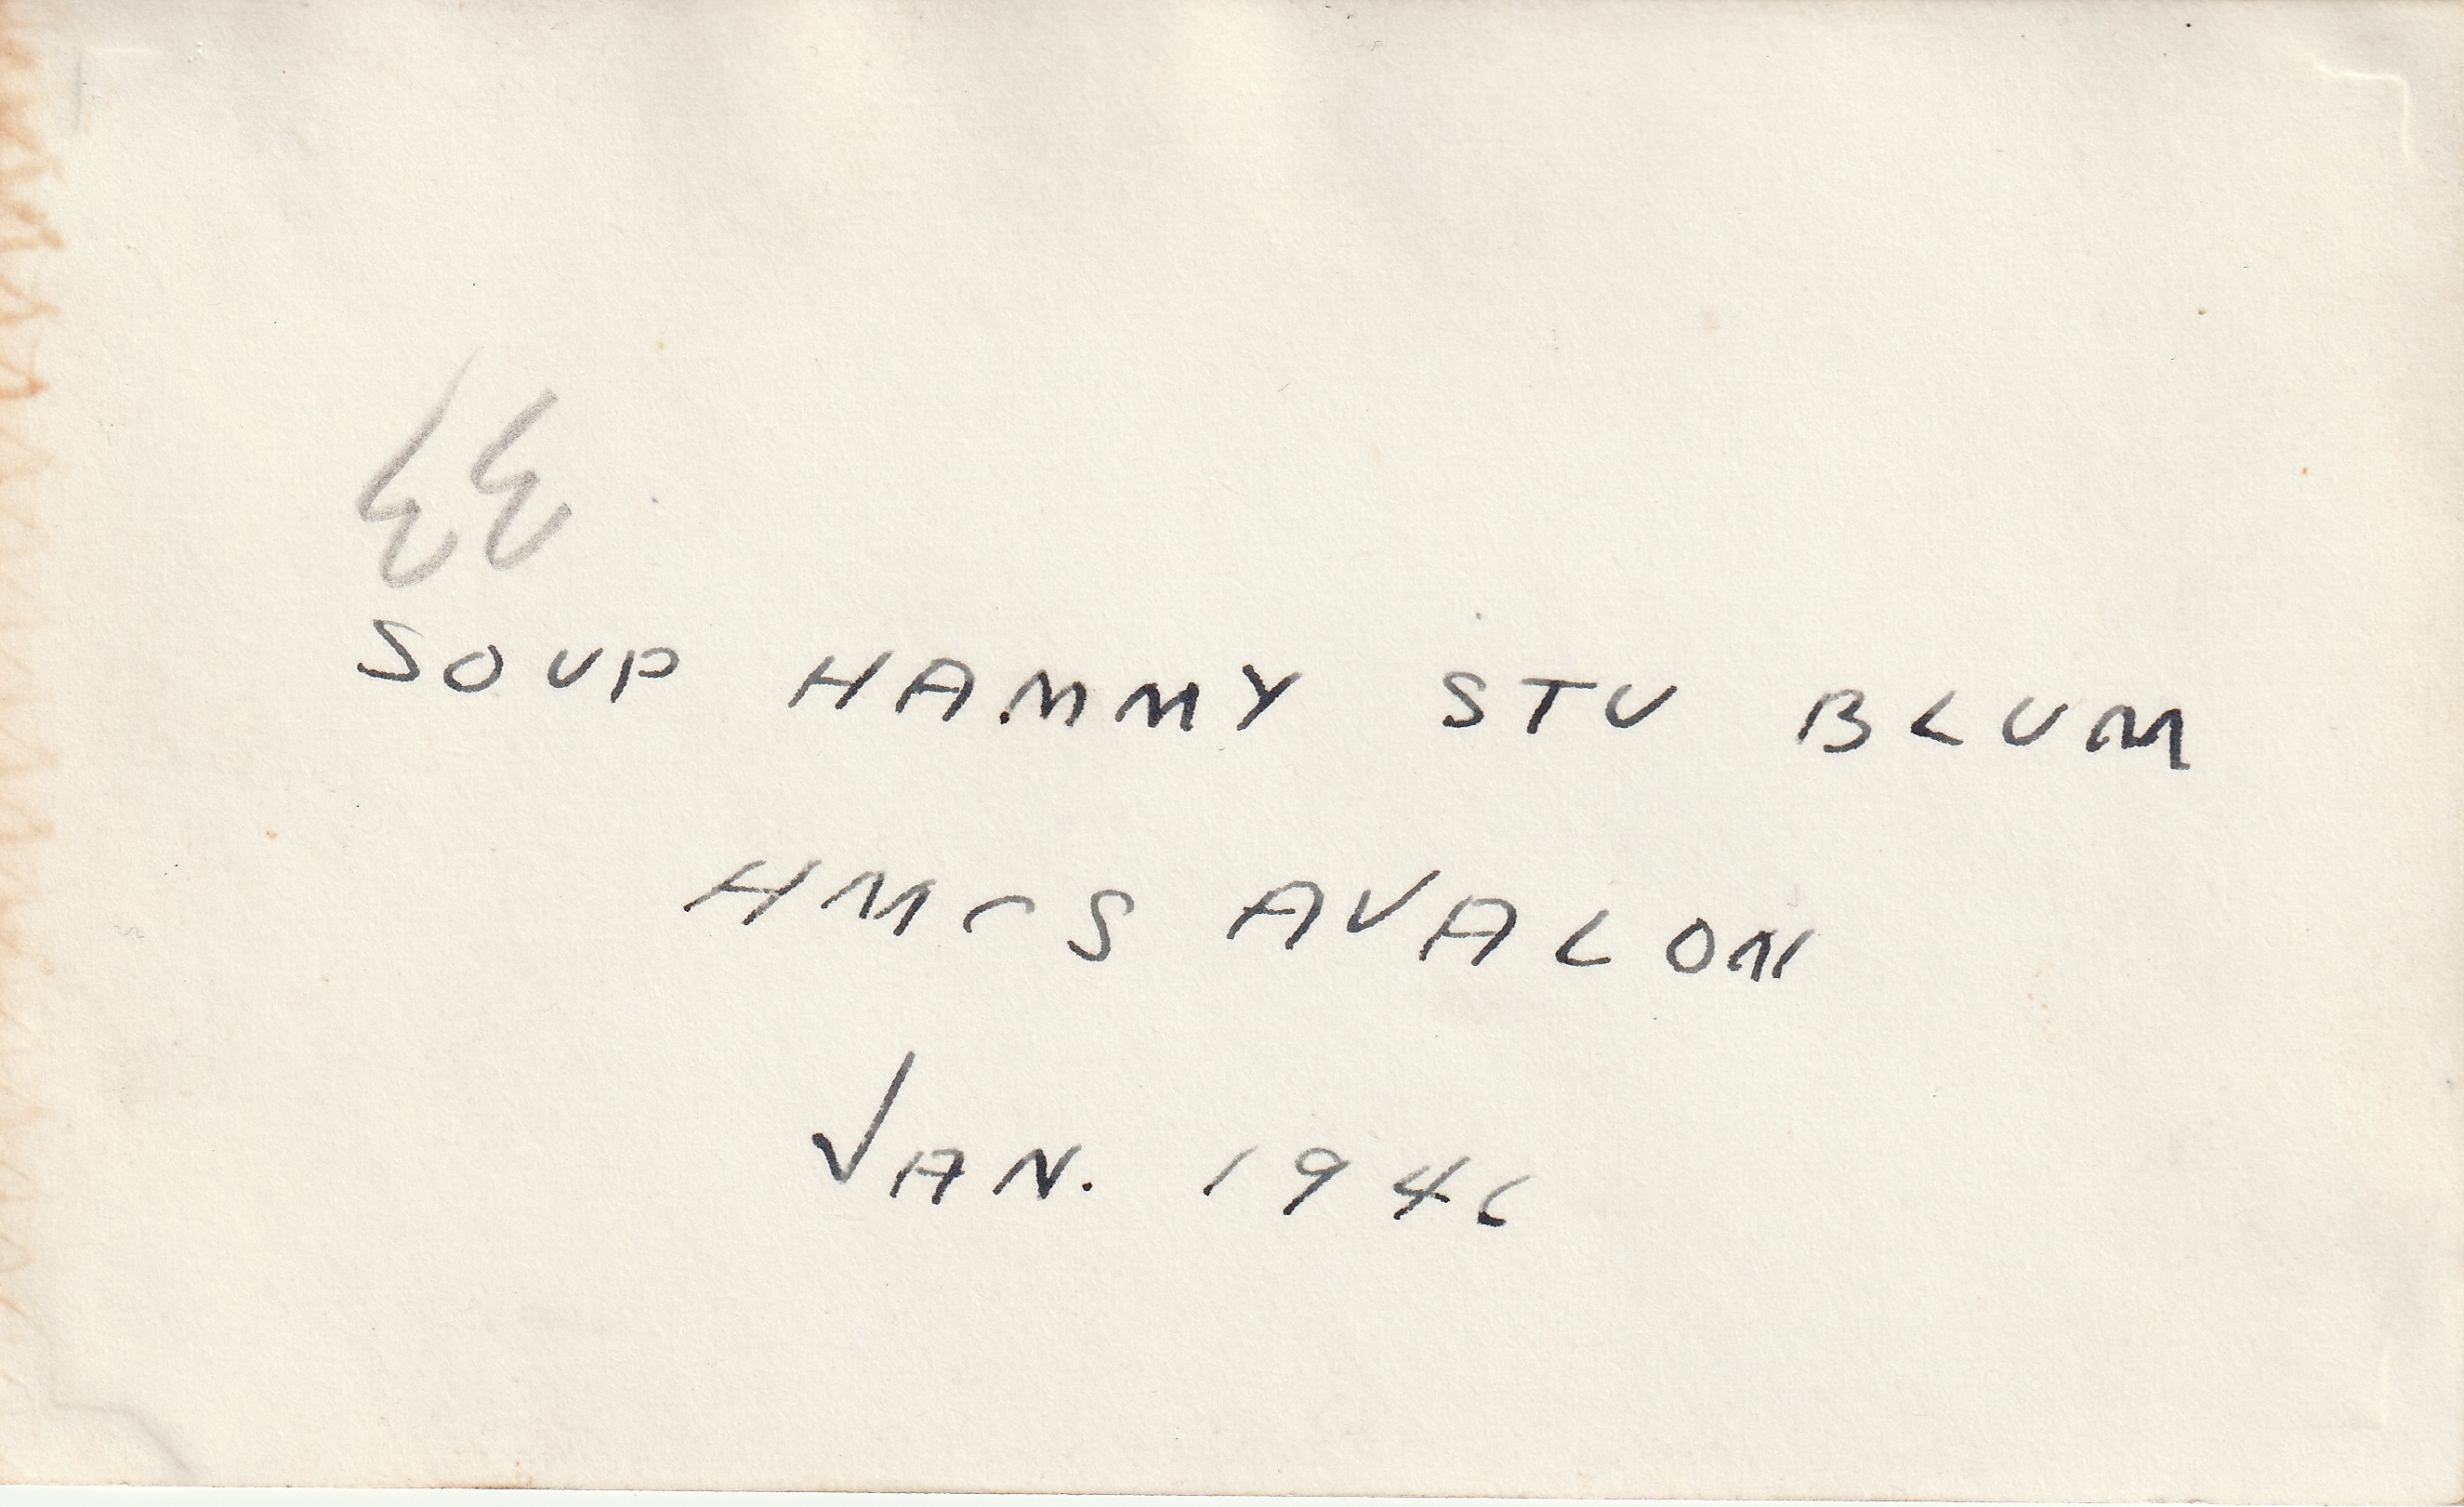 SOUP HAMMY STU BLUM
HMCS AVALON
JAN. 1946